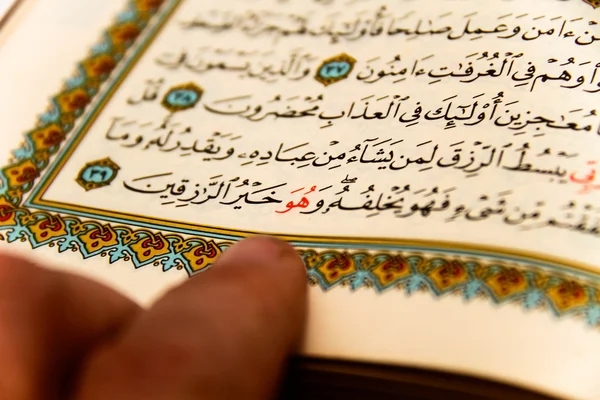 ءَامَنَ وَعَمِلَ صَٰلِحًا فَأُو۟لَٰٓئِكَ لَهُمْ
وَهُمْ فِى ٱلْغُرُفَٰتِ ءَامِنُونَ ٣٧ وَٱلَّذِينَ يَسْعَوْنَ فِىٓ
مُعَٰجِزِينَ أُو۟لَٰٓئِكَ فِى ٱلْعَذَابِ مُحْضَرُونَ ٣٨ قُلْ
يَبْسُطُ ٱلرِّزْقَ لِمَن يَشَآءُ مِنْ عِبَادِهِۦ وَيَقْدِرُ لَهُۥ وَمَآ
مِّن شَىْءٍ فَهُوَ يُخْلِفُهُۥ ۖ وَهُوَ خَيْرُ ٱلرَّٰزِقِينَ ٣٩